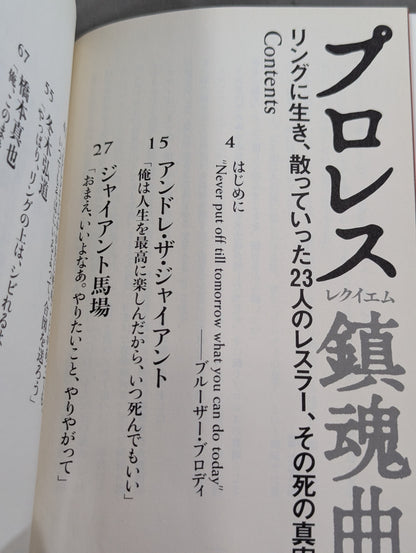 プロレス
レクイエム
鎮魂曲
リングに生き、散っていった23人のレスラー、その死の真
Contents
4
はじめに
“Never put off till tomorrow what you can do today”
――ブルーザー・ブロディ
15
アンドレ・ザ・ジャイアント
「俺は人生を最高に楽しんだから、いつ死んでもいい」
27
ジャイアント馬場
「おまえ、いいよなあ。やりたいこと、やりやがって」
55
冬木弘道
67
橋本真也
「俺、この